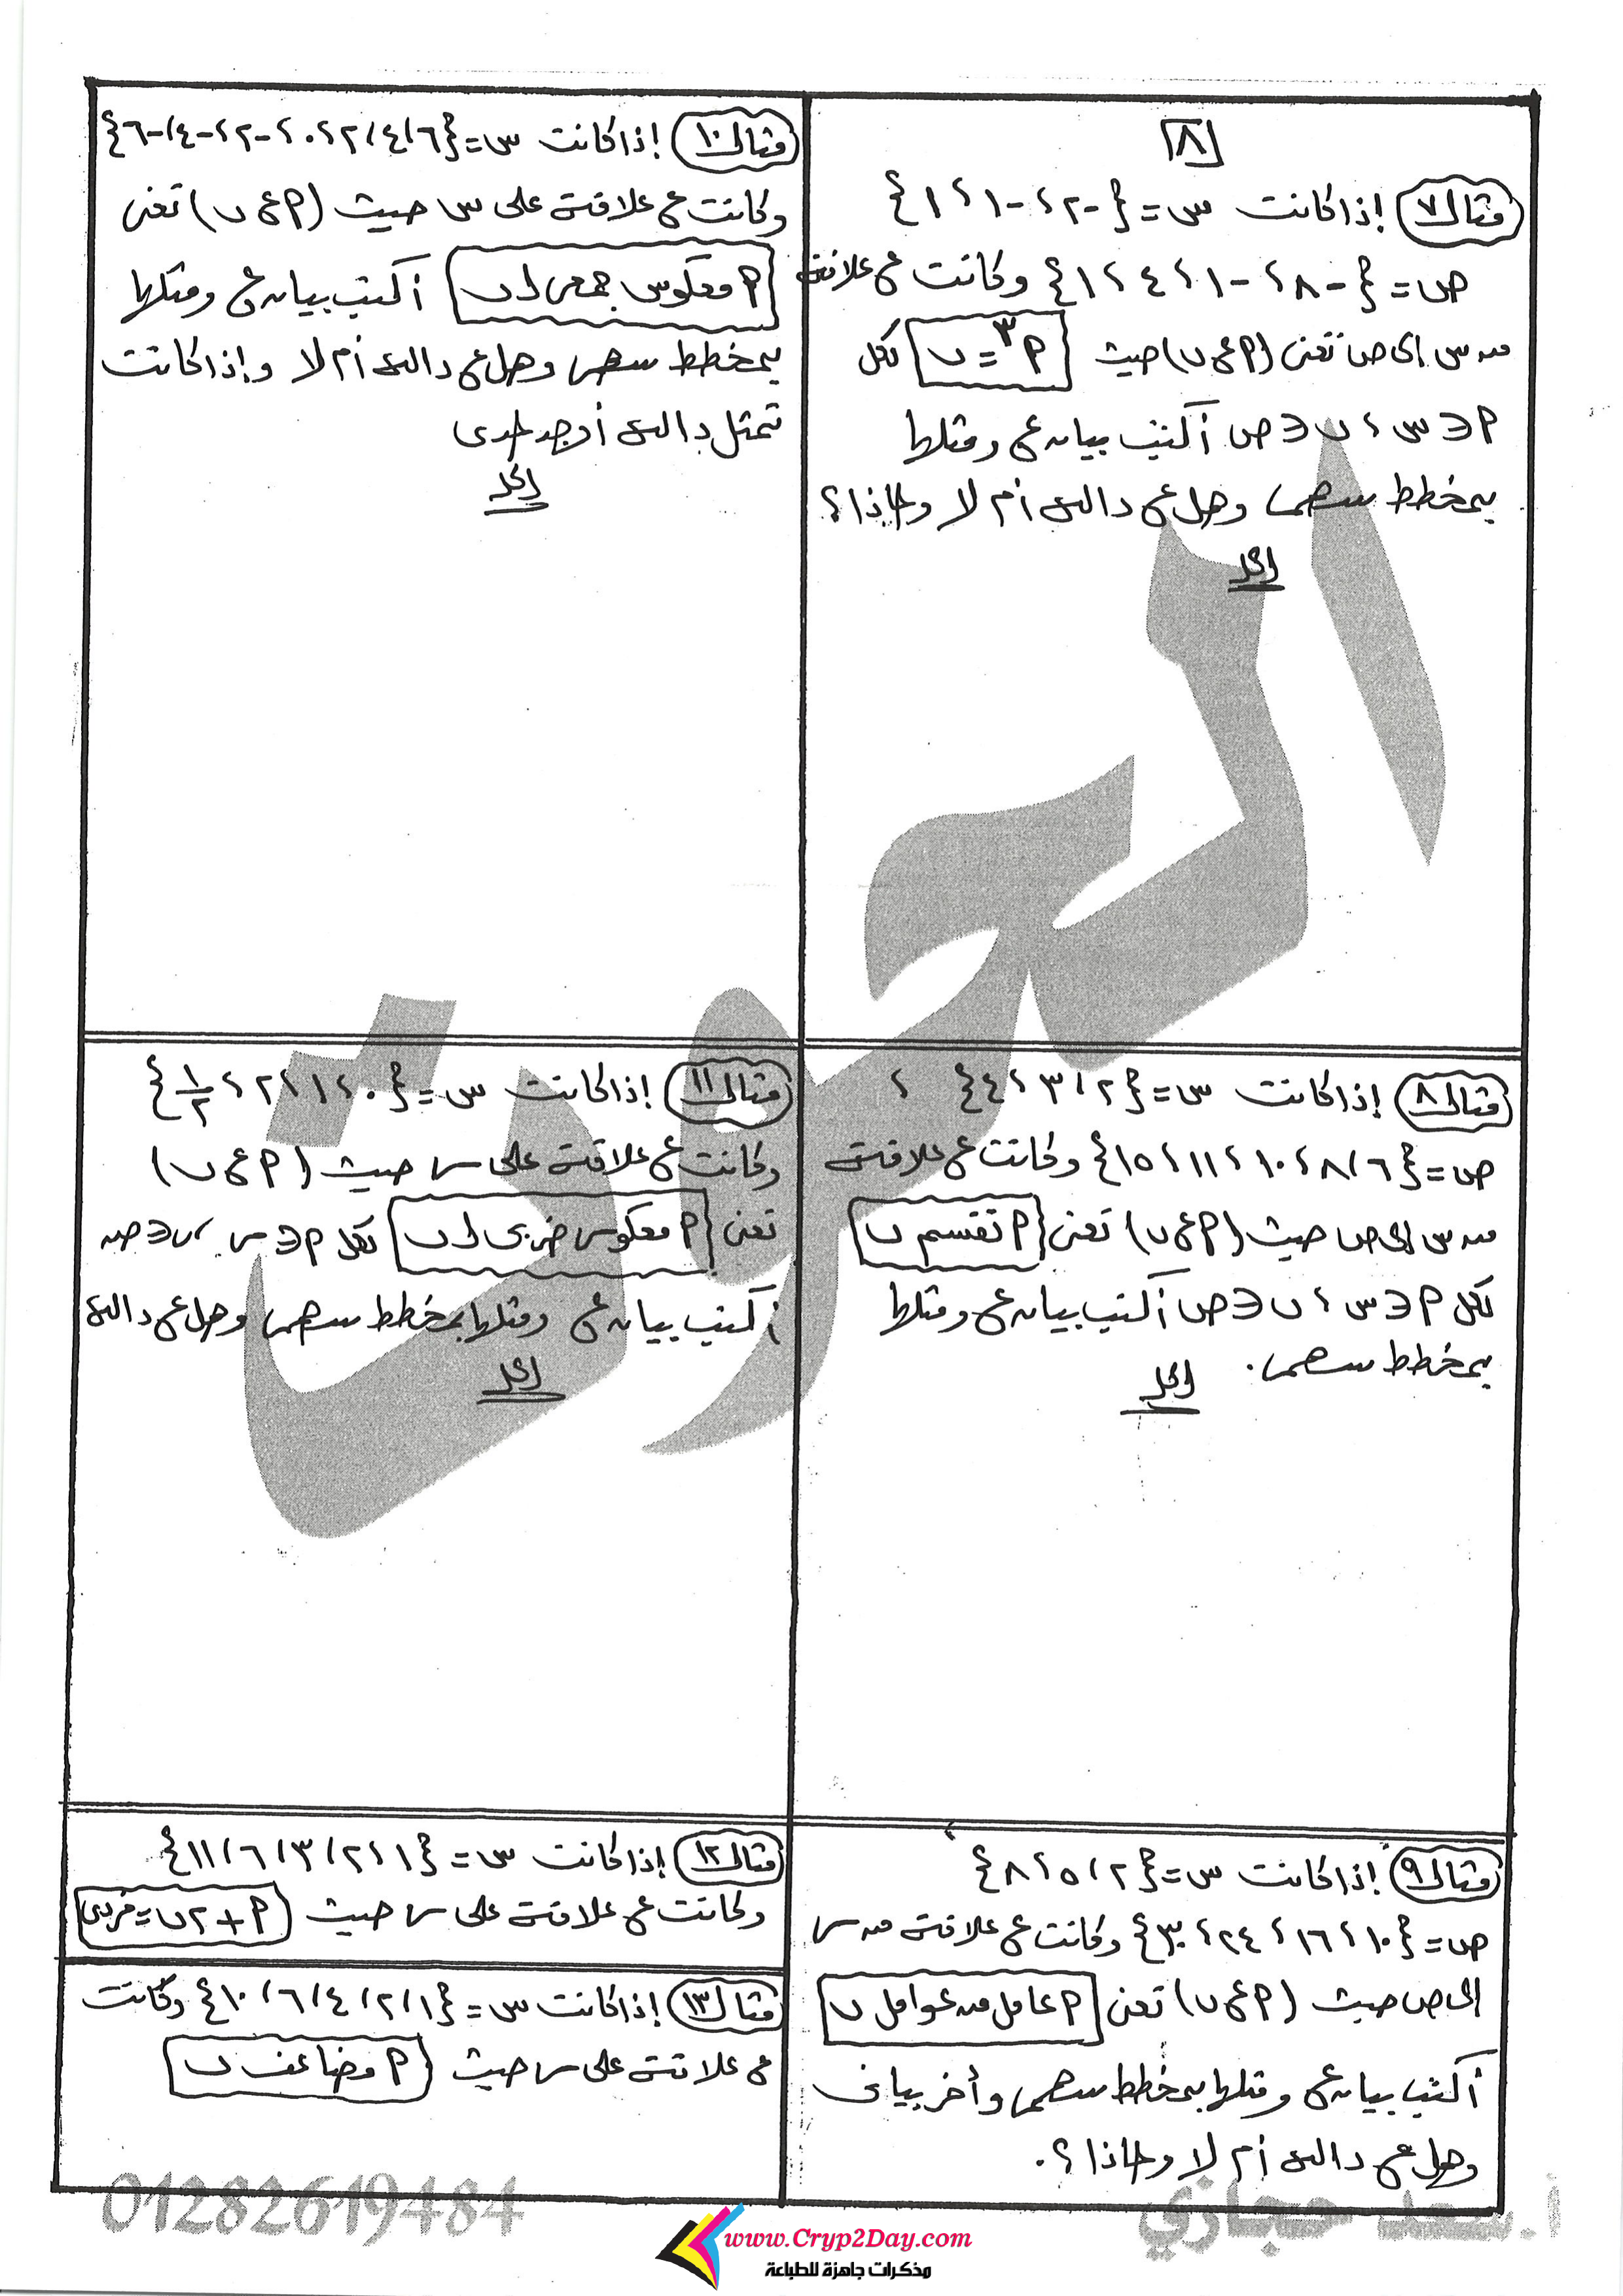 [٨]
مثال ٧ إذا كانت س = {-٢، -١، ١}
ص = {-٨، -١، ٤، ١} وكانت ع علاقة
من س إلى ص تعنى (أ ع ب) حيث أ³ = ب لكل
أ ∈ س، ب ∈ ص أكتب بيان ع ومثلها
بمخطط سهمى وهل ع دالة أم لا ولماذا؟
الحل
مثال ٨ إذا كانت س = {٢، ٣، ٤}،
ص = {٦، ٨، ١٠، ١١، ١٥} وكانت ع علاقة
من س إلى ص حيث (أ ع ب) تعنى أ تقسم ب
لكل أ ∈ س، ب ∈ ص أكتب بيان ع ومثلها
بمخطط سهمى.
الحل
مثال ٩ إذا كانت س = {٢، ٥، ٨}
ص = {١٠، ١٦، ٢٤، ٣٠} وكانت ع علاقة من س
إلى ص حيث (أ ع ب) تعنى أ عامل من عوامل ب
أكتب بيان ع ومثلها بمخطط سهمى وأخر بيانى
وهل ع دالة أم لا ولماذا؟.
مثال ١٠ إذا كانت س = {٦، ٤، ٢، ٠، -٢، -٤، -٦}
وكانت ع علاقة على س حيث (أ ع ب) تعنى
أ معكوس جمعى لـ ب أكتب بيان ع ومثلها
بمخطط سهمى وهل ع دالة أم لا وإذا كانت
تمثل دالة أوجد المدى
الحل
مثال ١١ إذا كانت س = {٠، ١، ٢، ١/٢}
وكانت ع علاقة على س حيث (أ ع ب)
تعنى أ معكوس ضربى لـ ب لكل أ ∈ س، ب ∈ ص
أكتب بيان ع ومثلها بمخطط سهمى وهل ع دالة
الحل
مثال ١٢ إذا كانت س = {١، ٢، ٣، ٦، ١١}
وكانت ع علاقة على س حيث أ + ٢ب = فردى
مثال ١٣ إذا كانت س = {١، ٢، ٤، ٦، ١٠} وكانت
ع علاقة على س حيث أ مضاعف ب
01282619484
أ. سعد حجازي
www.Cryp2Day.com
مذكرات جاهزة للطباعة